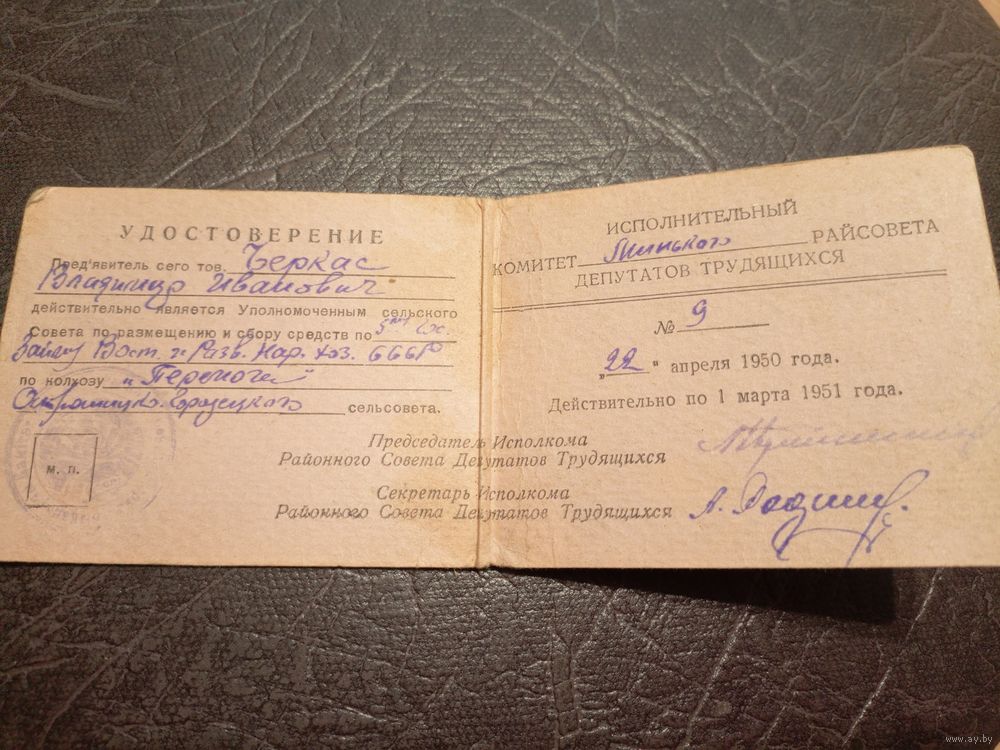 УДОСТОВЕРЕНИЕ
Пред'явитель сего тов. Черкас
Владимир Иванович
действительно является Уполномоченным сельского
Совета по размещению и сбору средств по 5му
Займу Вост. и Разв. Нар. Хоз. СССР
по колхозу
Острошицко-Городецкого сельсовета.
М. П.
ИСПОЛНИТЕЛЬНЫЙ
КОМИТЕТ РАЙСОВЕТА
ДЕПУТАТОВ ТРУДЯЩИХСЯ
№ 9
„22“ апреля 1950 года.
Действительно по 1 марта 1951 года.
Председатель Исполкома
Районного Совета Депутатов Трудящихся
Секретарь Исполкома
Районного Совета Депутатов Трудящихся
www.ay.by